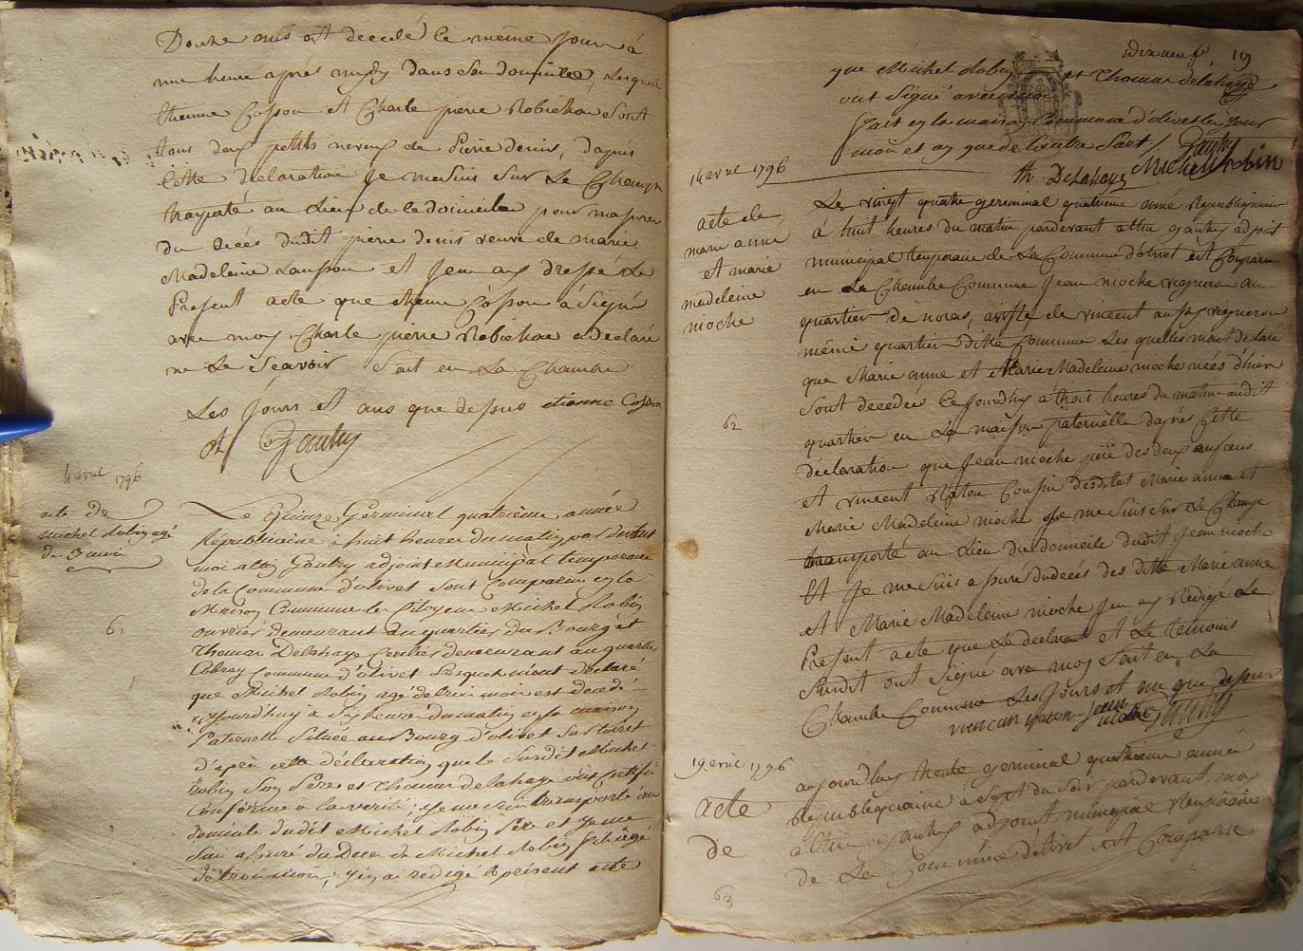 Douze ans est decedé le meme jour à
une heure après midy dans son domicile, lesquels
Etienne Cosson et Charle pierre Robichon sont
tous deux petits neveux de Pierre denis, dapres
cette declaration je me suis sur Le Champ
trasporté au Lieu de le doimcile pour
du decés dudit pierre denis veuve de marie
Madeleine et Jen ay dressé Le
Present acte que etienne Cosson à Signé
avec moy Charle pierre Robichon a declaré
ne Le Scavoir fait en La Chambre
Les Jours et ans que dessus etienne Cosson
Gautry
4 avril 1796
acte de
michel Robin agé
de 3 mois
6
Le Quinze Germinal quatrieme année
Republicaine à huit heures du matin par devant
moi Gautry adjoint Municipal temporaire
de la Commune d'olivet sont Comparus en la
Maison Commune le Citoyen Michel Robin
ouvrier demeurant au quartier du Bourg et
Thomas Delahaye demeurant au quartier
Commune d'olivet Lesquels m'ont declaré
que Michel Robin agé de trois mois est decedé
aujourdhuy à heures du matin en la maison
Paternelle Située au Bourg d'olivet
d'apres cette déclaration que le Susdit Michel
Robin Son Pere et Thomas Delahaye ont certifié
Conforme à la verité, je me suis transporté au
domicile dudit Michel Robin Pere et je me
suis assuré du Deces de Michel Robin fils agé
de trois mois, j'en ai redigé le present acte
dix neuf 19
que Michel Robin et Thomas delahaye
ont Signé avec moi
fait en la maison Commune d'olivet les jour
mois et an que dessus Gautry
th Delahaye Michel Robin
14 avril 1796
acte de
marie anne
et marie
madeleine
mioche
62
Le vingt quatre germinal quatrieme année Republiquaine
à huit heures du matin pardevant gautry adjoint
municipal temporaire de La Commune dolivet est Comparu
en La Chambe Commune Jean mioche vigneron au
quartier de noras, de vincent vigneron
même quartier ditte Commune Les quelles mont declaré
que Marie anne et Marie Madeleine mioche nées d'hier
Sont decedés cejourdhy à heures du matin audit
quartier en La maison paternelle dapres cette
déclaration que Jean mioche pere des deux anfans
et vincent Raton Cousin desdites Marie anne et
Marie Madeleine mioche je me suis sur Le Champ
transporté au Lieu du domicile dudit Jean mioche
et Je me suis assuré dudeces des ditte Marie anne
et Marie Madeleine mioche Jen ay Redigé Le
Present acte que Le declarant et Le temoins
Susdit ont Signé avec moy fait en La
Chambe Commune Les Jours et an que dessus
vincan raton Jean mioche Gautry
19 avril 1796
acte
de
63
aujourdhuy trente germinal quatrieme année
Republiquaine à Sept du Soir pardevant moy
gautry adjoint municipal temporaire
de La Commune dolivet est Comparu